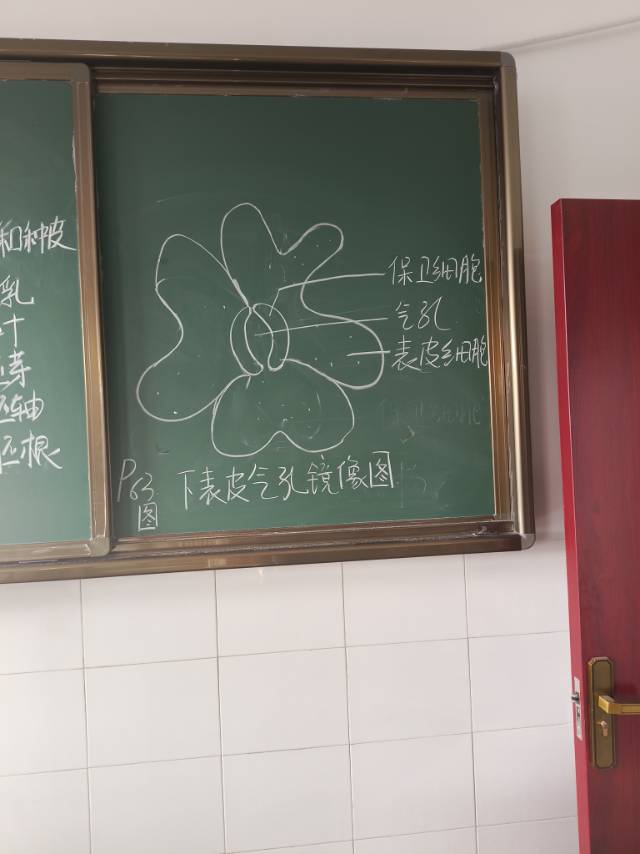 和种皮
乳
叶
芽
胚轴
胚根
保卫细胞
气孔
表皮细胞
P63
图
下表皮气孔镜像图